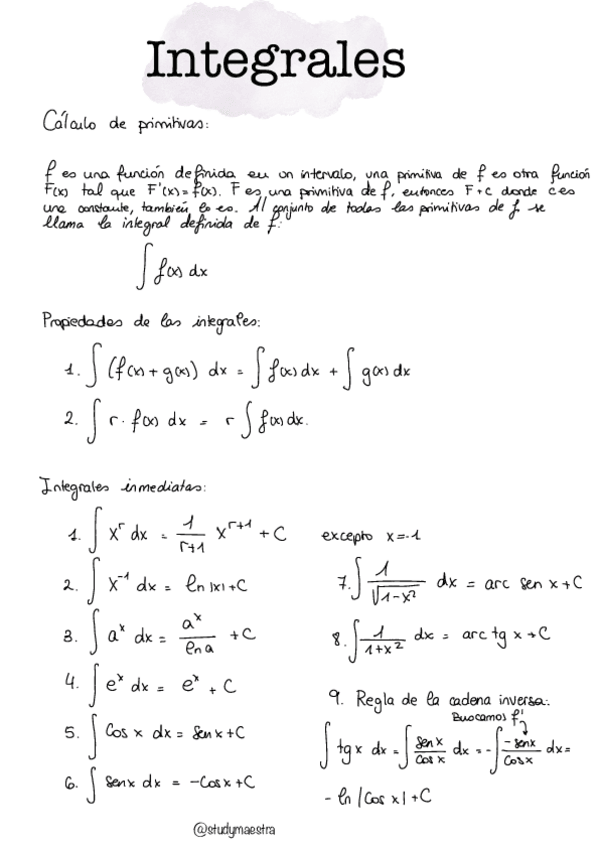 Integrales
Cálculo de primitivas:
f es una función definida en un intervalo, una primitiva de f es otra función
F(x) tal que F'(x) = f(x). F es una primitiva de f, entonces F + C donde c es
una constante, también lo es. Al conjunto de todas las primitivas de f se
llama la integral definida de f:
∫ f(x) dx
Propiedades de las integrales:
1. ∫ (f(x) + g(x)) dx = ∫ f(x) dx + ∫ g(x) dx
2. ∫ r · f(x) dx = r ∫ f(x) dx.
Integrales inmediatas:
1. ∫ x^r dx = 1/(r+1) x^(r+1) + C excepto x = -1
2. ∫ x^-1 dx = ln |x| + C
3. ∫ a^x dx = a^x/ln a + C
4. ∫ e^x dx = e^x + C
5. ∫ Cos x dx = Sen x + C
6. ∫ Sen x dx = -Cos x + C
7. ∫ 1/√(1-x²) dx = arc sen x + C
8. ∫ 1/(1+x²) dx = arc tg x + C
9. Regla de la cadena inversa:
Buscamos f'
∫ tg x dx = ∫ Sen x/Cos x dx = - ∫ -Sen x/Cos x dx =
- ln |Cos x| + C
@studymaestra